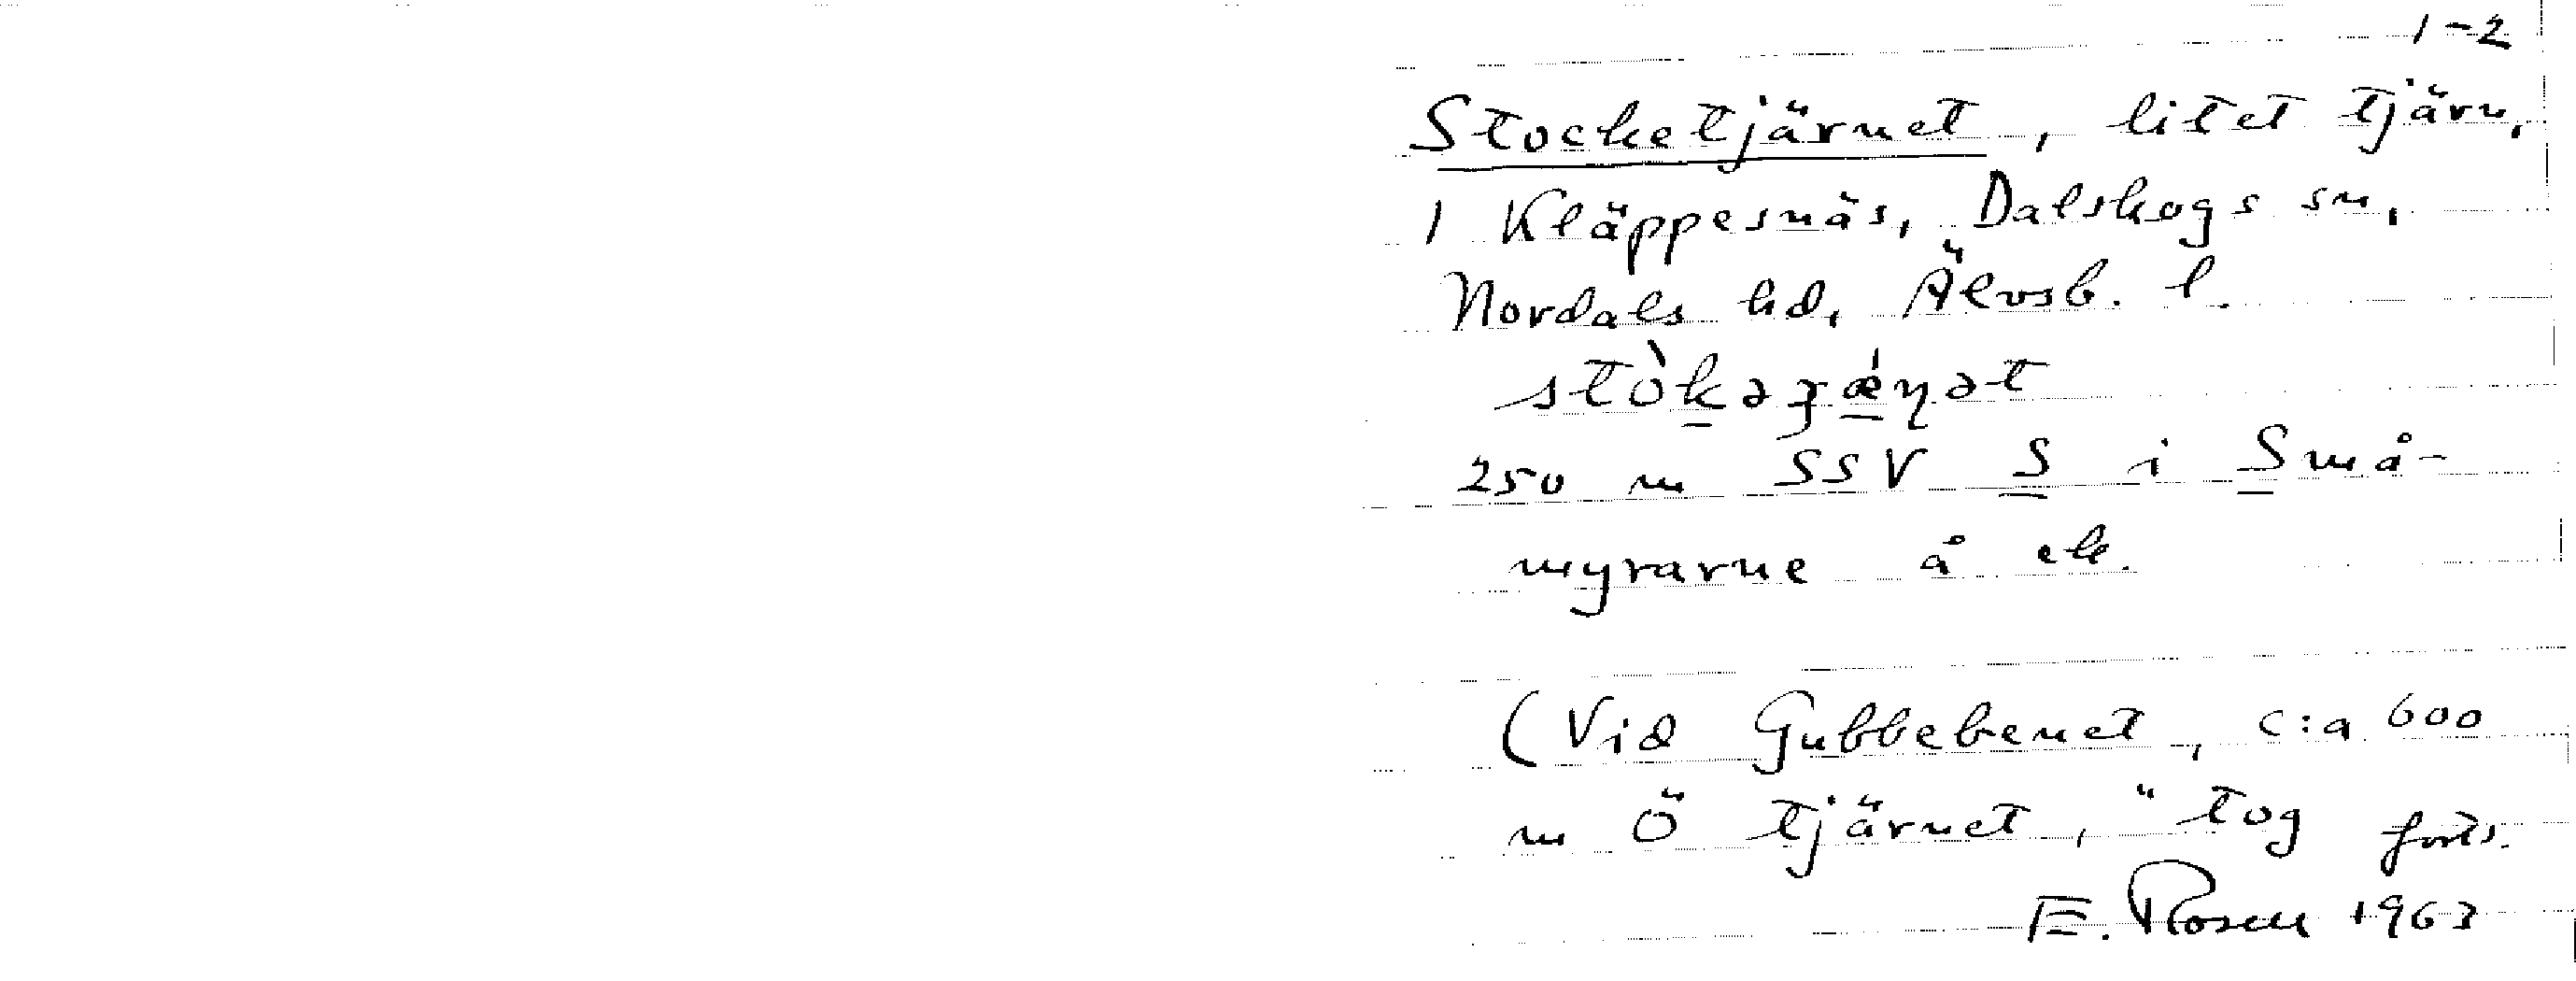 1-2
Stocketjärnet, litet tjärn,
1 Kläppesnäs, Dalskogs sn,
Nordals hd, Älvsb. l.
250 m SSV S i Små-
myrarne å ek.
(Vid Gubbebenet, c:a 600
m Ö tjärnet, "tog forts.
E. Rosell 1963